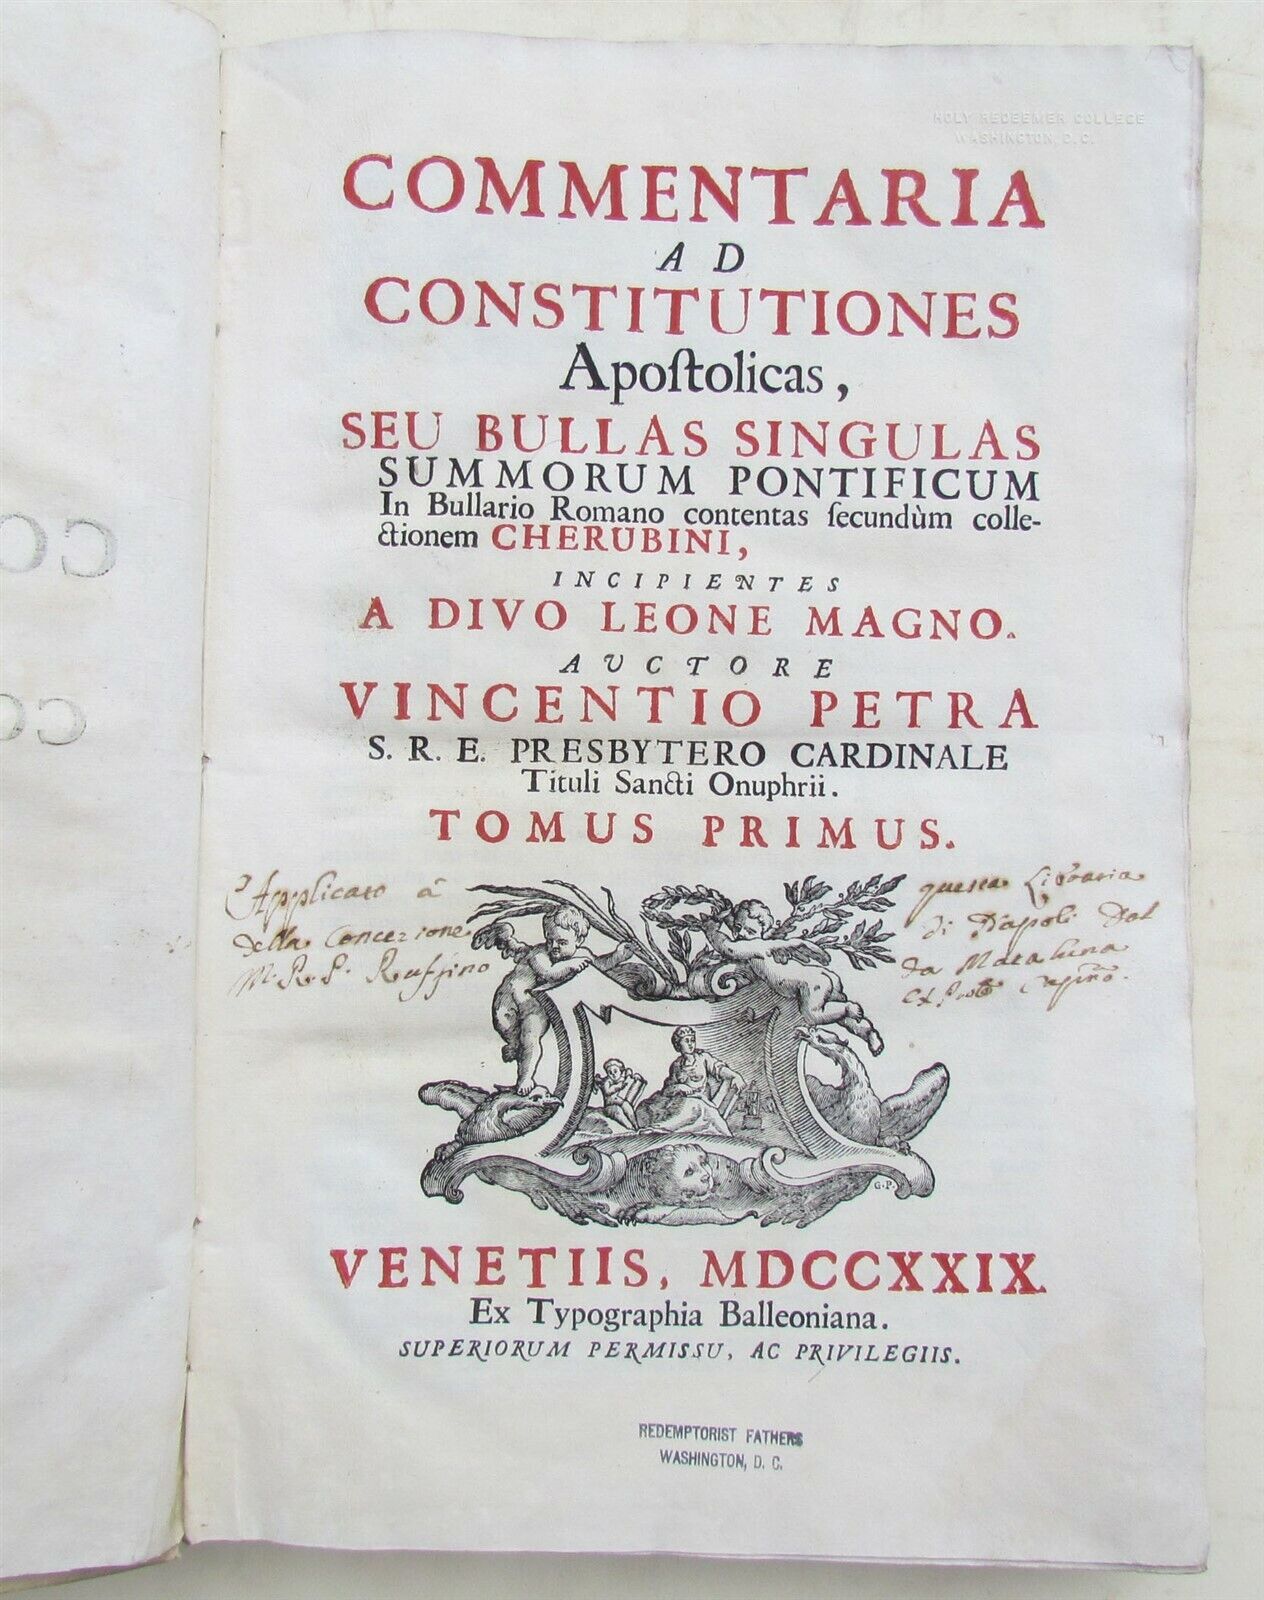 HOLY REDEEMER COLLEGE
WASHINGTON, D.C.
COMMENTARIA
AD
CONSTITUTIONES
Apoſtolicas,
SEU BULLAS SINGULAS
SUMMORUM PONTIFICUM
In Bullario Romano contentas ſecundùm colle-
ctionem CHERUBINI,
INCIPIENTES
A DIVO LEONE MAGNO.
AVCTORE
VINCENTIO PETRA
S. R. E. PRESBYTERO CARDINALE
Tituli Sancti Onuphrii.
TOMUS PRIMUS.
Applicato à questa Libraria
della Concezione di Napoli dal
M. R. P. Ruffino da
G.P.
VENETIIS, MDCCXXIX.
Ex Typographia Balleoniana.
SUPERIORUM PERMISSU, AC PRIVILEGIIS.
REDEMPTORIST FATHERS
WASHINGTON, D. C.